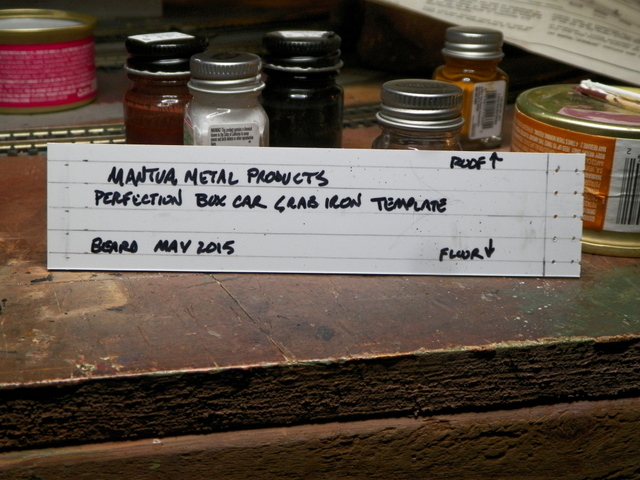 ROOF↑
MANTUA METAL PRODUCTS
PERFECTION BOX CAR GRAB IRON TEMPLATE
BEARD MAY 2015
FLOOR↓